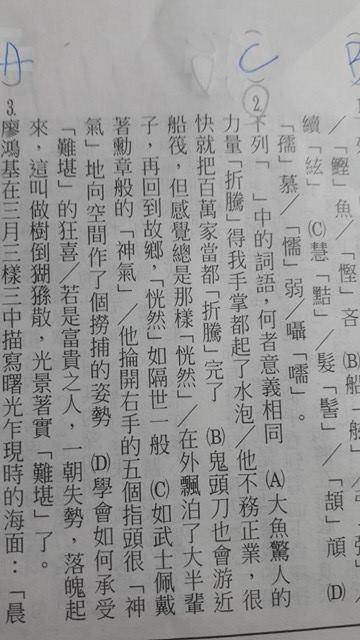 A
C
B
／「鰹」魚／「慳」吝 (B)船「
續「絃」 (C)慧「黠」／髮「髻」／「頡」頏 (D)
「孺」慕／「懦」弱／囁「嚅」。
2.下列「 」中的詞語，何者意義相同 (A)大魚驚人的
力量「折騰」得我手掌都起了水泡／他不務正業，很
快就把百萬家當都「折騰」完了 (B)鬼頭刀也會游近
船筏，但感覺總是那樣「恍然」／在外飄泊了大半輩
子，再回到故鄉，「恍然」如隔世一般 (C)如武士佩戴
著勳章般的「神氣」／他掄開右手的五個指頭很「神
氣」地向空間作了個撈捕的姿勢 (D)學會如何承受
「難堪」的狂喜／若是富貴之人，一朝失勢，落魄起
來，這叫做樹倒猢猻散，光景著實「難堪」了。
3.廖鴻基在三月三樣三中描寫曙光乍現時的海面：「晨